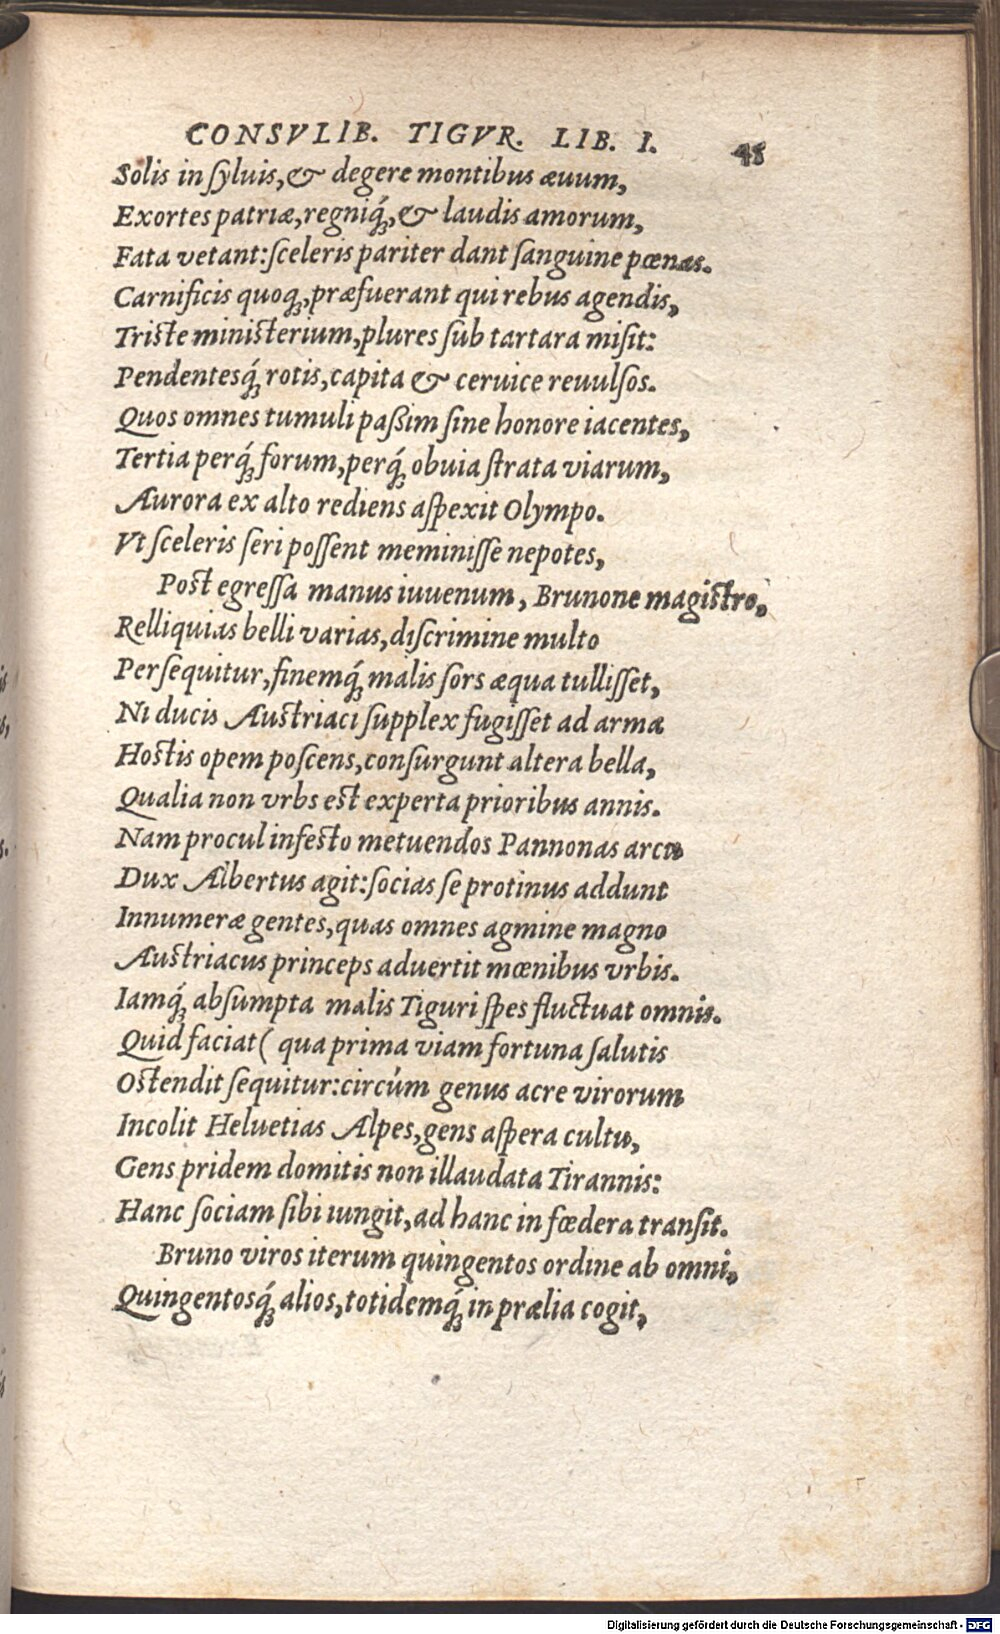 CONSVLIB. TIGVR. LIB. I. 45
Solis in ſyluis, & degere montibus æuum,
Exortes patriæ, regniq́;, & laudis amorum,
Fata vetant: ſceleris pariter dant ſanguine pœnas.
Carnificis quoq;, præfuerant qui rebus agendis,
Triste ministerium, plures ſub tartara miſit:
Pendentesq́; rotis, capita & ceruice reuulſos.
Quos omnes tumuli paßim ſine honore iacentes,
Tertia perq́; forum, perq́; obuia ſtrata viarum,
Aurora ex alto rediens aſpexit Olympo.
Vt ſceleris ſeri poſſent meminiſſe nepotes,
Post egreſſa manus iuuenum, Brunone magistro,
Relliquias belli varias, diſcrimine multo
Perſequitur, finemq́; malis ſors æqua tulliſſet,
Ni ducis Austriaci ſupplex fugiſſet ad arma
Hostis opem poſcens, conſurgunt altera bella,
Qualia non vrbs est experta prioribus annis.
Nam procul infesto metuendos Pannonas arcu
Dux Albertus agit: ſocias ſe protinus addunt
Innumeræ gentes, quas omnes agmine magno
Austriacus princeps aduertit mœnibus vrbis.
Iamq́; abſumpta malis Tiguri ſpes fluctuat omnis.
Quid faciat ( qua prima viam fortuna ſalutis
Ostendit ſequitur: circúm genus acre virorum
Incolit Heluetias Alpes, gens aſpera cultu,
Gens pridem domitis non illaudata Tirannis:
Hanc ſociam ſibi iungit, ad hanc in fœdera tranſit.
Bruno viros iterum quingentos ordine ab omni,
Quingentosq́; alios, totidemq́; in prælia cogit,
Digitalisierung gefördert durch die Deutsche Forschungsgemeinschaft - DFG